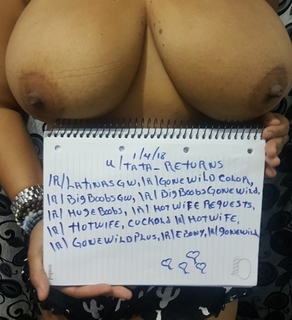 1/4/18
u/TATA_RETURNS
|R/LATINASGW, |R|GONEWILD COLOR,
|R/BIGBOOBSGW, |R|BIGBOOBSGONEWILD,
|R/HUGEBOOBS, |R|HOTWIFE REQUESTS,
|R/HOTWIFE, CUCKOLD |R|HOTWIFE,
|R/GONEWILDPLUS, |R|EBONY, |R|GONEWILD